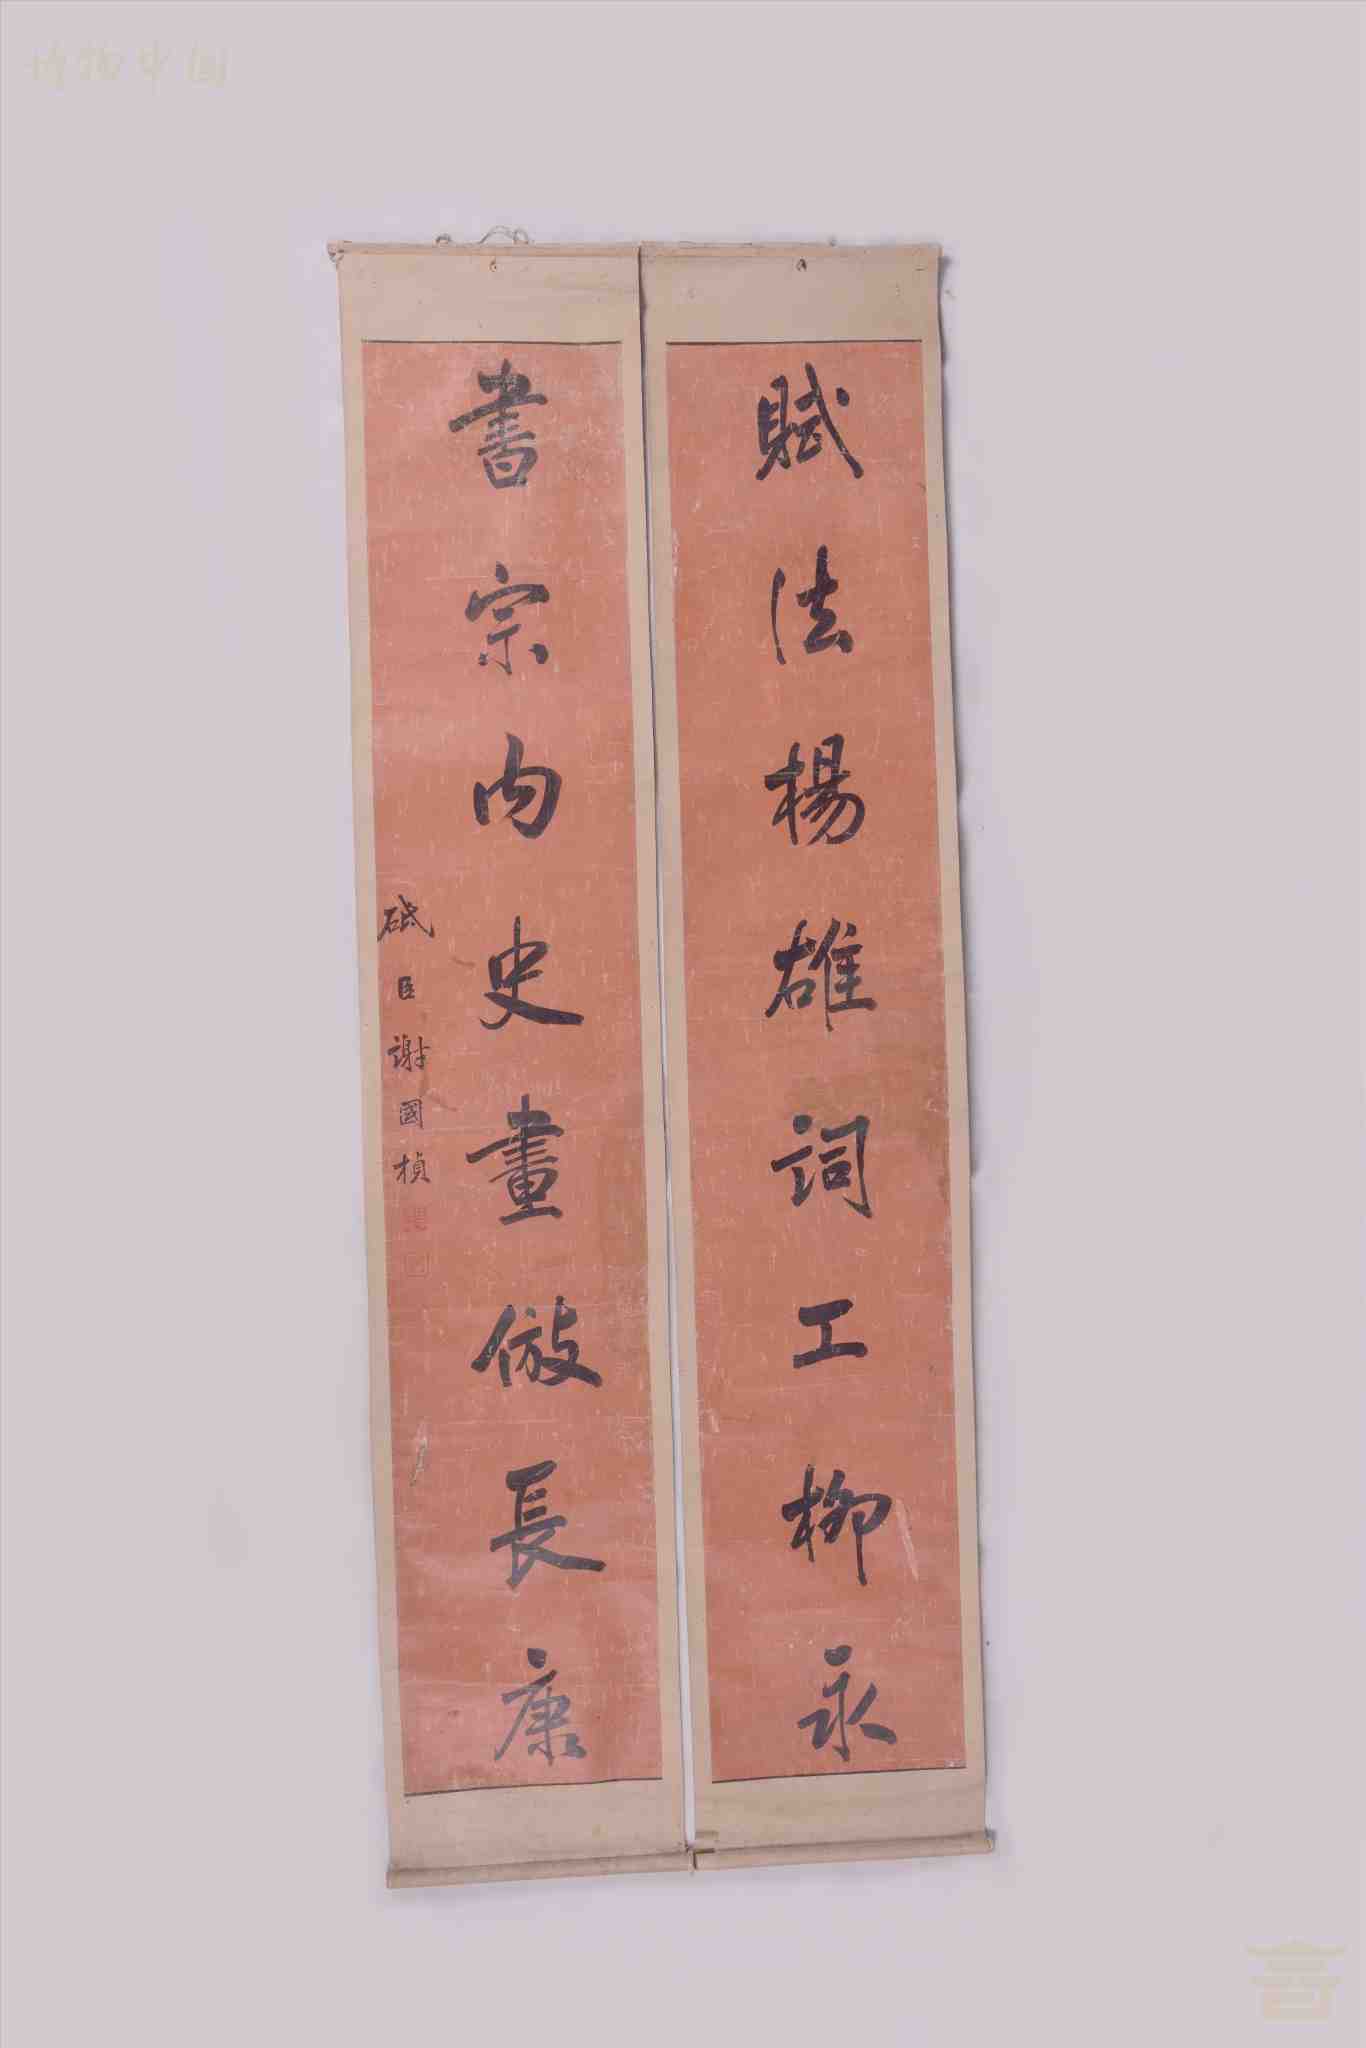 賦法楊雄詞工柳永
書宗内史畫倣長康
砥臣謝國楨
博物中国